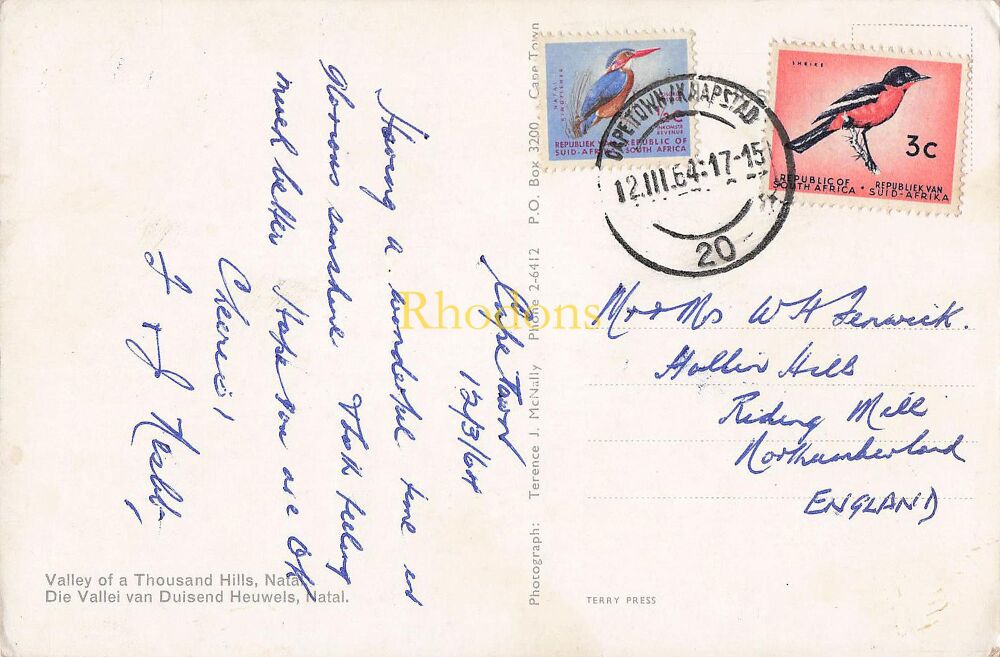 Cape Town
12/3/64
Having a wonderful time in
glorious sunshine Both feeling
much better Hope you are OK
Cheerio!
J Nesbit
Valley of a Thousand Hills, Natal.
Die Vallei van Duisend Heuwels, Natal.
Photograph: Terence J. McNally Phone 2-6412 P.O. Box 3200 Cape Town
TERRY PRESS
NATAL KINGFISHER
½c
INKOMSTE
REVENUE
REPUBLIEK VAN REPUBLIC OF
SUID-AFRIKA SOUTH AFRICA
SHRIKE
3c
REPUBLIC OF REPUBLIEK VAN
SOUTH AFRICA • SUID-AFRIKA
CAPE TOWN/KAAPSTAD
12.III.64:17-15
20
Mr & Mrs W H Fenwick.
Hollin Hills
Riding Mill
Northumberland
ENGLAND
Rhodons